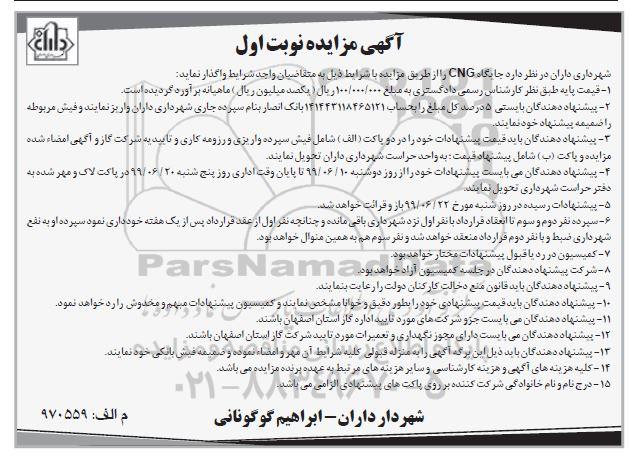 آگهی مزایده نوبت اول
شهرداری داران در نظر دارد جایگاه CNG را از طریق مزایده با شرایط ذیل به متقاضیان واجد شرایط واگذار نماید:
۱- قیمت پایه طبق نظر کارشناس رسمی دادگستری به مبلغ ۱۰۰/۰۰۰/۰۰۰ ریال (یکصد میلیون ریال) ماهیانه برآورد گردیده است.
۲- پیشنهاد دهندگان بایستی ۵ درصد کل مبلغ را بحساب ۱۴۱۴۴۲۱۱۸۴۶۵۱۲۱ بانک انصار بنام سپرده جاری شهرداری داران واریز نمایند و فیش مربوطه
را ضمیمه پیشنهاد خود نمایند.
۳- پیشنهاد دهندگان باید قیمت پیشنهادات خود را در دو پاکت (الف) شامل فیش سپرده واریزی و رزومه کاری و تاییدیه شرکت گاز و آگهی امضاء شده
مزایده و پاکت (ب) شامل پیشنهاد قیمت: به واحد حراست شهرداری داران تحویل نمایند.
۴- پیشنهاد دهندگان می بایست پیشنهادات خود را از روز دوشنبه ۹۹/۰۶/۱۰ تا پایان وقت اداری روز پنج شنبه ۹۹/۰۶/۲۰ در پاکت لاک و مهر شده به
دفتر حراست شهرداری تحویل نمایند.
۵- پیشنهادات رسیده در روز شنبه مورخ ۹۹/۰۶/۲۲ باز و قرائت خواهد شد.
۶- سپرده نفر دوم و سوم تا انعقاد قرارداد با نفر اول نزد شهرداری باقی مانده و چنانچه نفر اول از عقد قرارداد پس از یک هفته خودداری نمود سپرده او به نفع
شهرداری ضبط و با نفر دوم قرارداد منعقد خواهد شد و نفر سوم هم به همین منوال خواهد بود.
۷- کمیسیون در رد یا قبول پیشنهادات مختار خواهد بود.
۸- شرکت پیشنهاد دهندگان در جلسه کمیسیون آزاد خواهد بود.
۹- پیشنهاد دهندگان باید قانون منع دخالت کارکنان دولت را رعایت بنمایند.
۱۰- پیشنهاد دهندگان باید قیمت پیشنهادی خود را بطور دقیق و خوانا مشخص نمایند و کمیسیون پیشنهادات مبهم و مخدوش را رد خواهد نمود.
۱۱- پیشنهاد دهندگان می بایست جزو شرکت های مورد تایید اداره گاز استان اصفهان باشند.
۱۲- پیشنهاد دهندگان می بایست دارای مجوز نگهداری و تعمیرات مورد تایید شرکت گاز استان اصفهان باشند.
۱۳- پیشنهاد دهندگان باید ذیل این برگه آگهی را به منزله قبولی کلیه شرایط آن مهر و امضاء نموده و ضمیمه فیش بانکی خود نمایند.
۱۴- کلیه هزینه های آگهی و هزینه کارشناسی و سایر هزینه های مرتبط به عهده برنده مزایده می باشد.
۱۵- درج نام و نام خانوادگی شرکت کننده بر روی پاکت های پیشنهادی الزامی می باشد.
شهردار داران - ابراهیم گوگونانی
م الف: ۹۷۰۵۵۹
ParsNamadData
۰۲۱-۸۸۳۴۹۶۷۰-۵